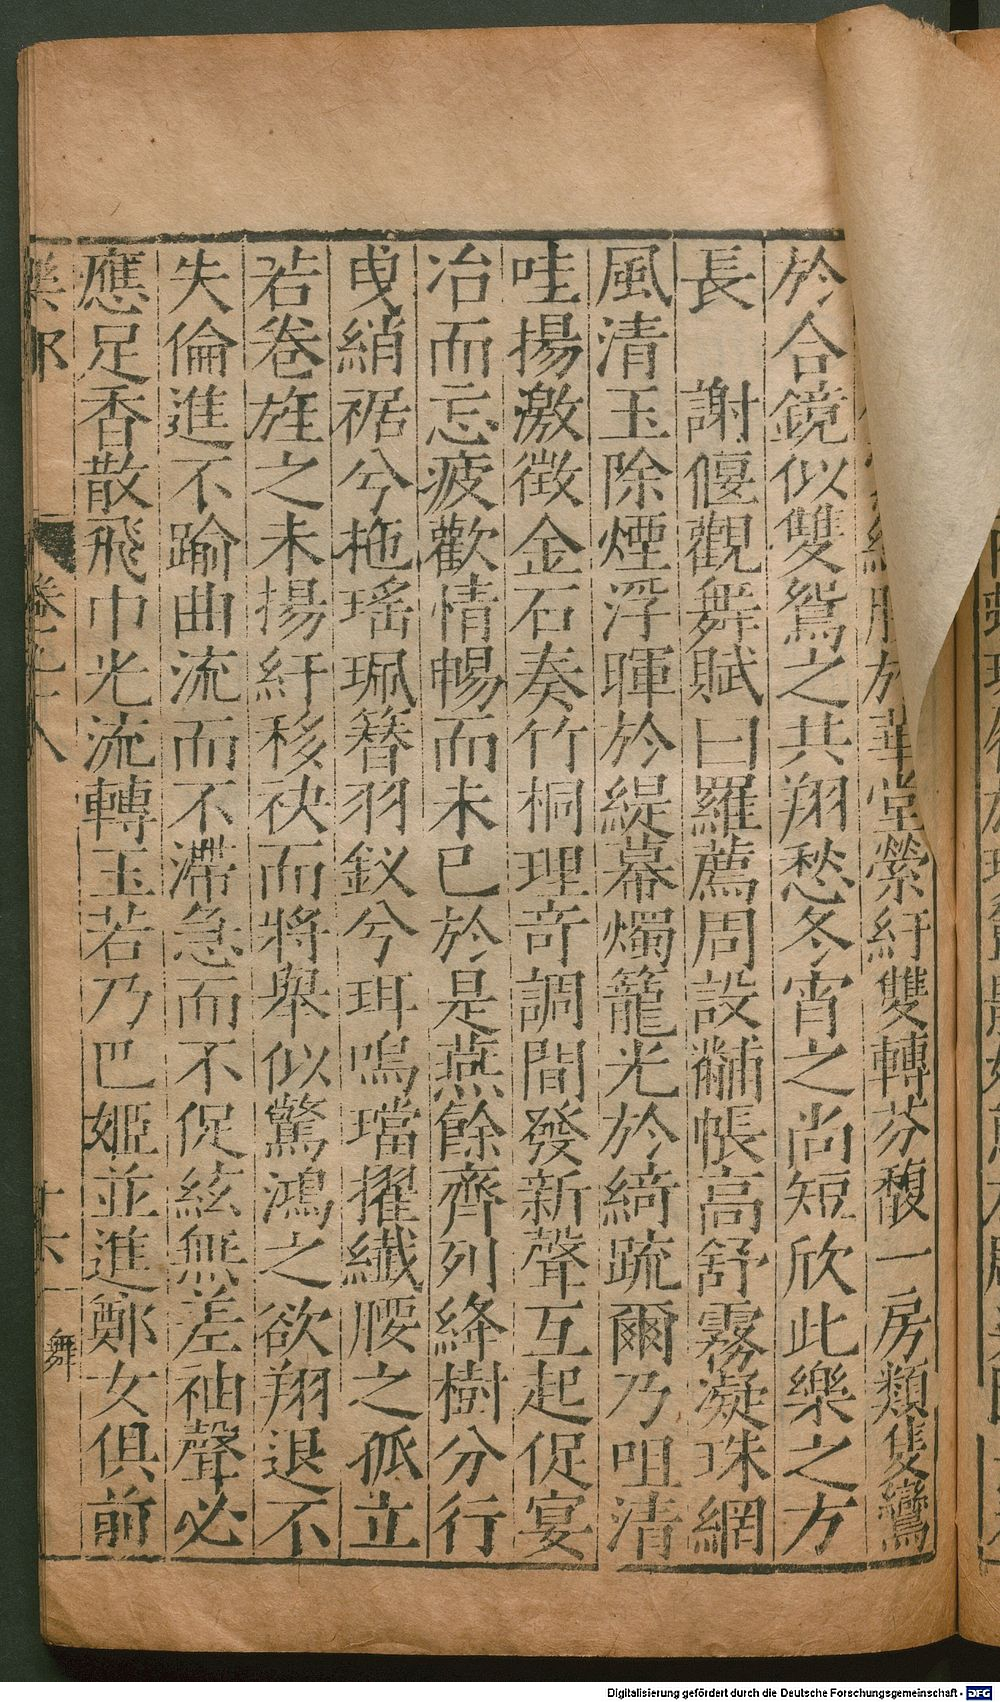 於華堂縈紆雙轉芬馥一房類隻鸞
於合鏡似雙鴛之共翔愁冬宵之尚短欣此樂之方
長　謝偃觀舞賦曰羅薦周設黼帳高舒霧凝珠網
風清玉除煙浮暉於緹幕燭籠光於綺疏爾乃咀清
哇揚激徵金石奏竹桐理竒調間發新聲互起促宴
冶而忘疲歡情暢而未已於是燕餘齊列絳樹分行
曵綃裾兮拖瑤珮簪羽釵兮珥鳴璫擢纎腰之孤立
若卷旌之未揚紆移袂而將舉似驚鴻之欲翔退不
失倫進不踰曲流而不滯急而不促絃無差袖聲必
應足香散飛巾光流轉玉若乃巴姬並進鄭女俱前
樂部
十六
舞
Digitalisierung gefördert durch die Deutsche Forschungsgemeinschaft - DFG